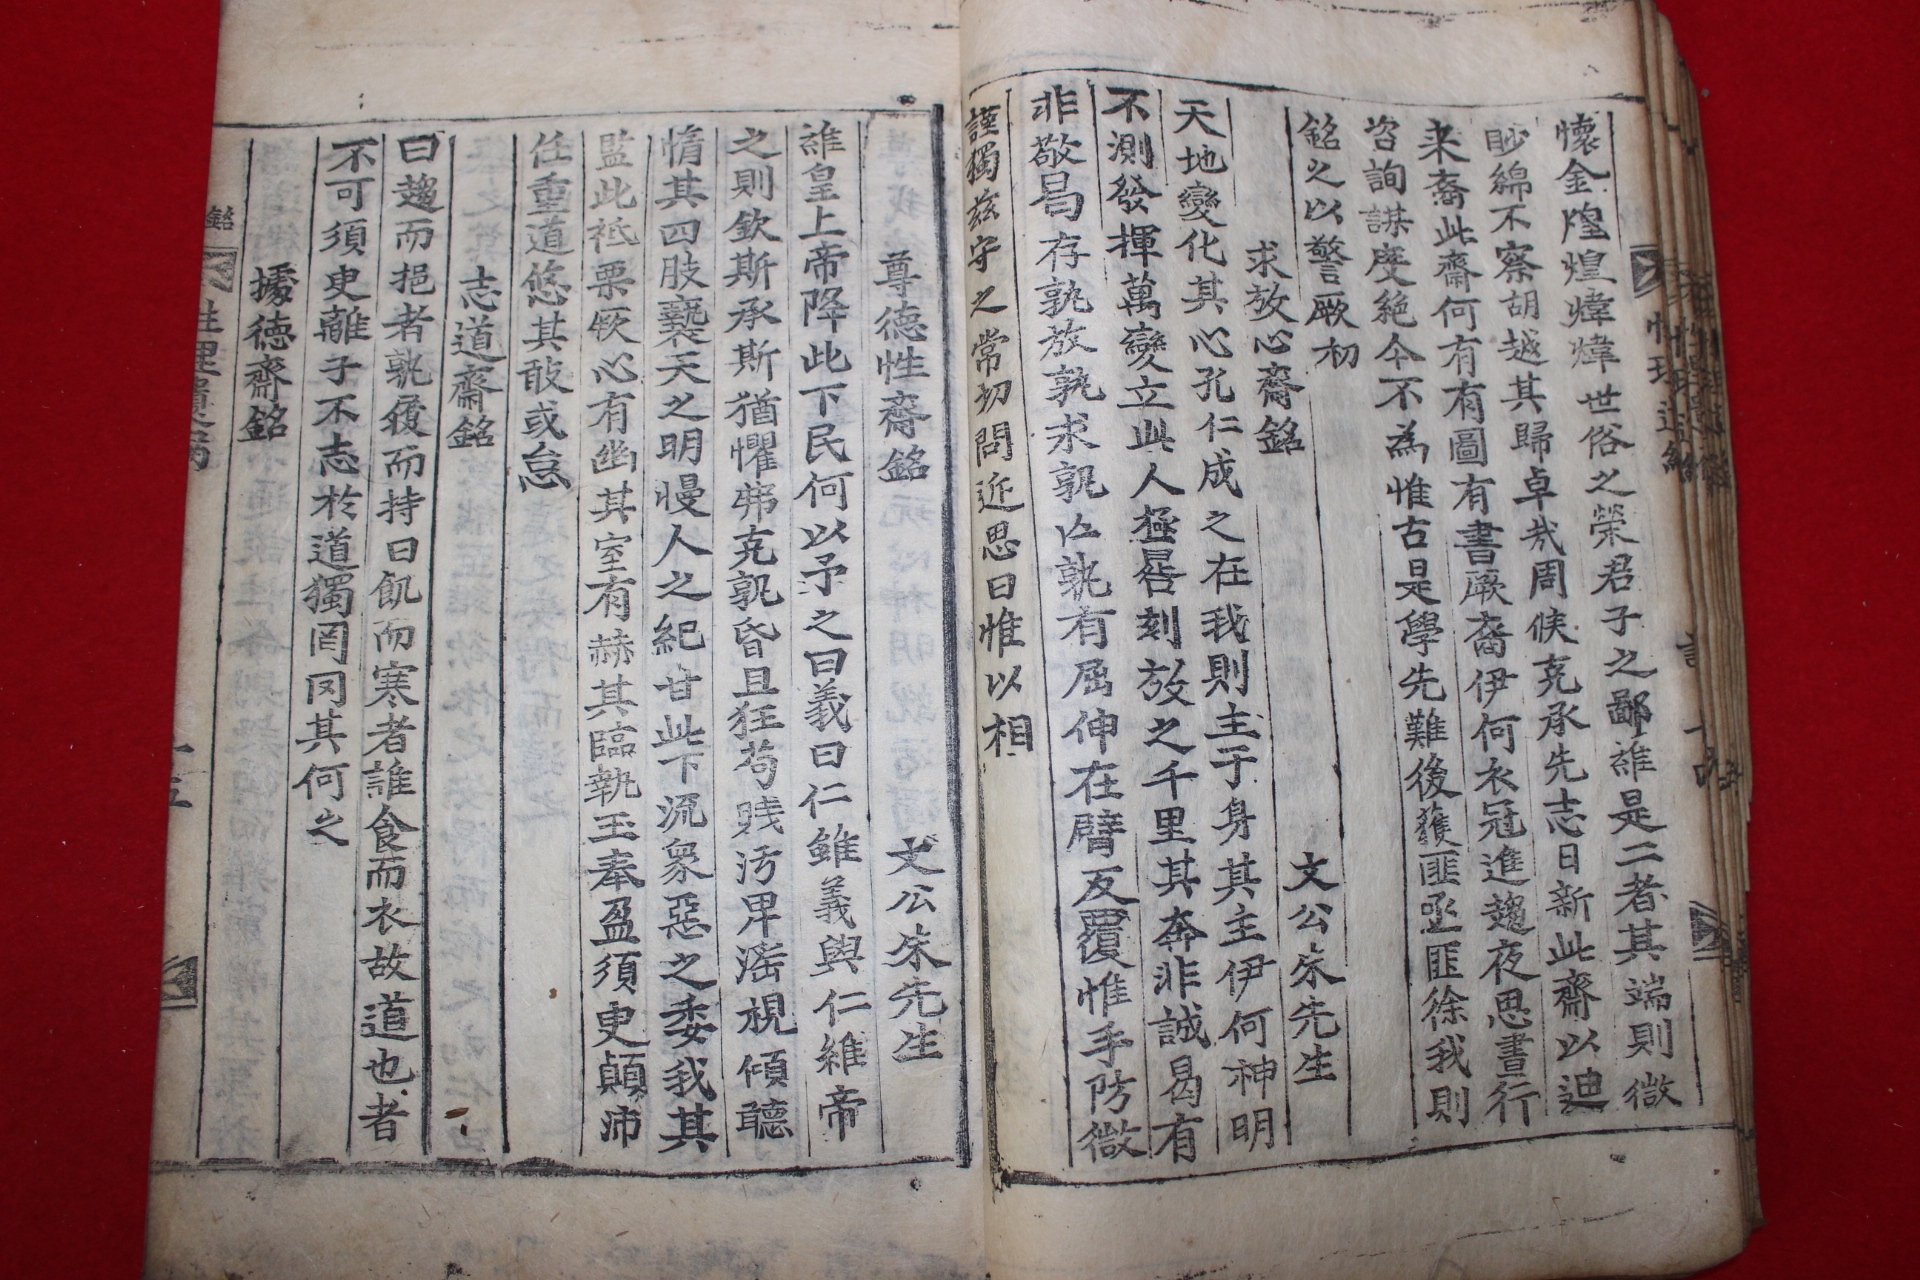 懷金煌煌煒煒世俗之榮君子之鄙維是二者其端則微
眇綿不察胡越其歸卓㢤周侯克承先志日新此齋以迪
来裔此齋何有有圖有書厥裔伊何衣冠進趨夜思晝行
咨詢謀度絶今不為惟古是學先難後獲匪亟匪徐我則
銘之以警厥初
求放心齋銘 文公朱先生
天地變化其心孔仁成之在我則主于身其主伊何神明
不測發揮萬變立此人極晷刻放之千里其奔非誠曷有
非敬曷存孰放孰求孰亡孰有屈伸在臂反覆惟手防微
謹獨玆守之常切問近思曰惟以相
尊德性齋銘 文公朱先生
維皇上帝降此下民何以予之曰義曰仁雖義與仁維帝
之則欽斯承斯猶懼弗克孰昏且狂苟賤汚卑滛視傾聽
惰其四肢褻天之明慢人之紀甘此下流衆惡之委我其
監此祗栗厥心有幽其室有赫其臨執玉奉盈須臾顛沛
任重道悠其敢或怠
志道齋銘
曰趨而挹者孰履而持曰飢而寒者誰食而衣故道也者
不可須臾離子不志於道獨罔罔其何之
據德齋銘
銘
性理遺